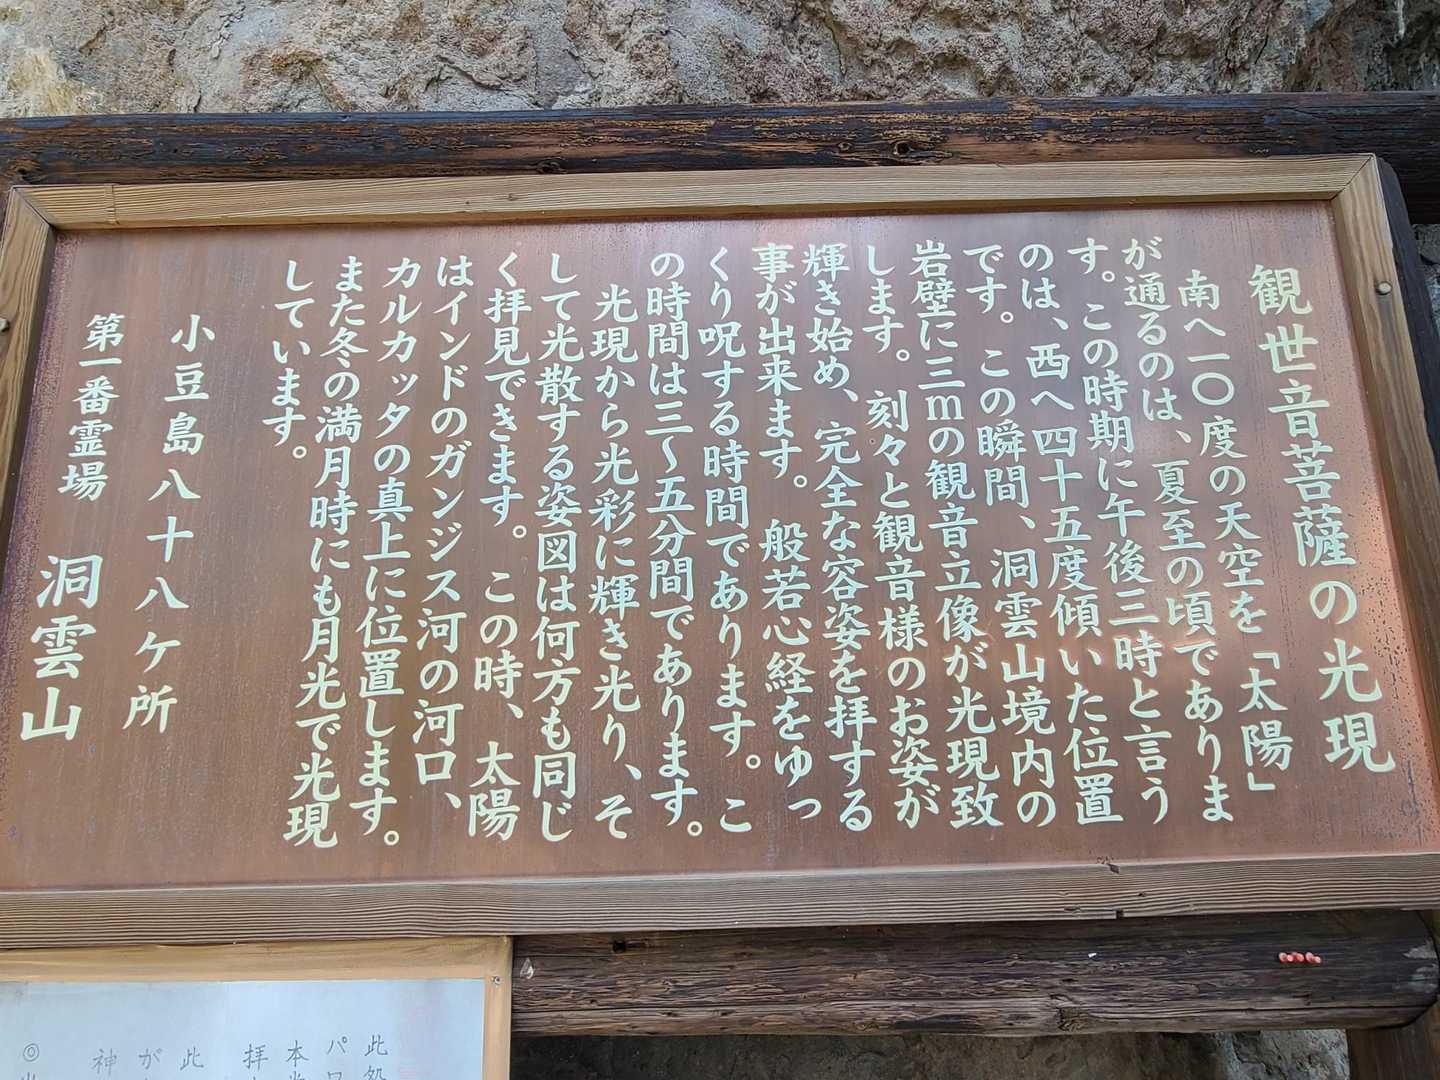 観世音菩薩の光現
南へ一〇度の天空を「太陽」
が通るのは、夏至の頃でありま
す。この時期に午後三時と言う
のは、西へ四十五度傾いた位置
です。この瞬間、洞雲山境内の
岩壁に三mの観音立像が光現致
します。刻々と観音様のお姿が
輝き始め、完全な容姿を拝する
事が出来ます。般若心経をゆっ
くり呪する時間であります。こ
の時間は三〜五分間であります。
光現から光彩に輝き光り、そ
して光散する姿図は何方も同じ
く拝見できます。この時、太陽
はインドのガンジス河の河口、
カルカッタの真上に位置します。
また冬の満月時にも月光で光現
しています。
小豆島八十八ケ所
第一番霊場 洞雲山
此処
パワ
本当
拝
此
が
神
◎